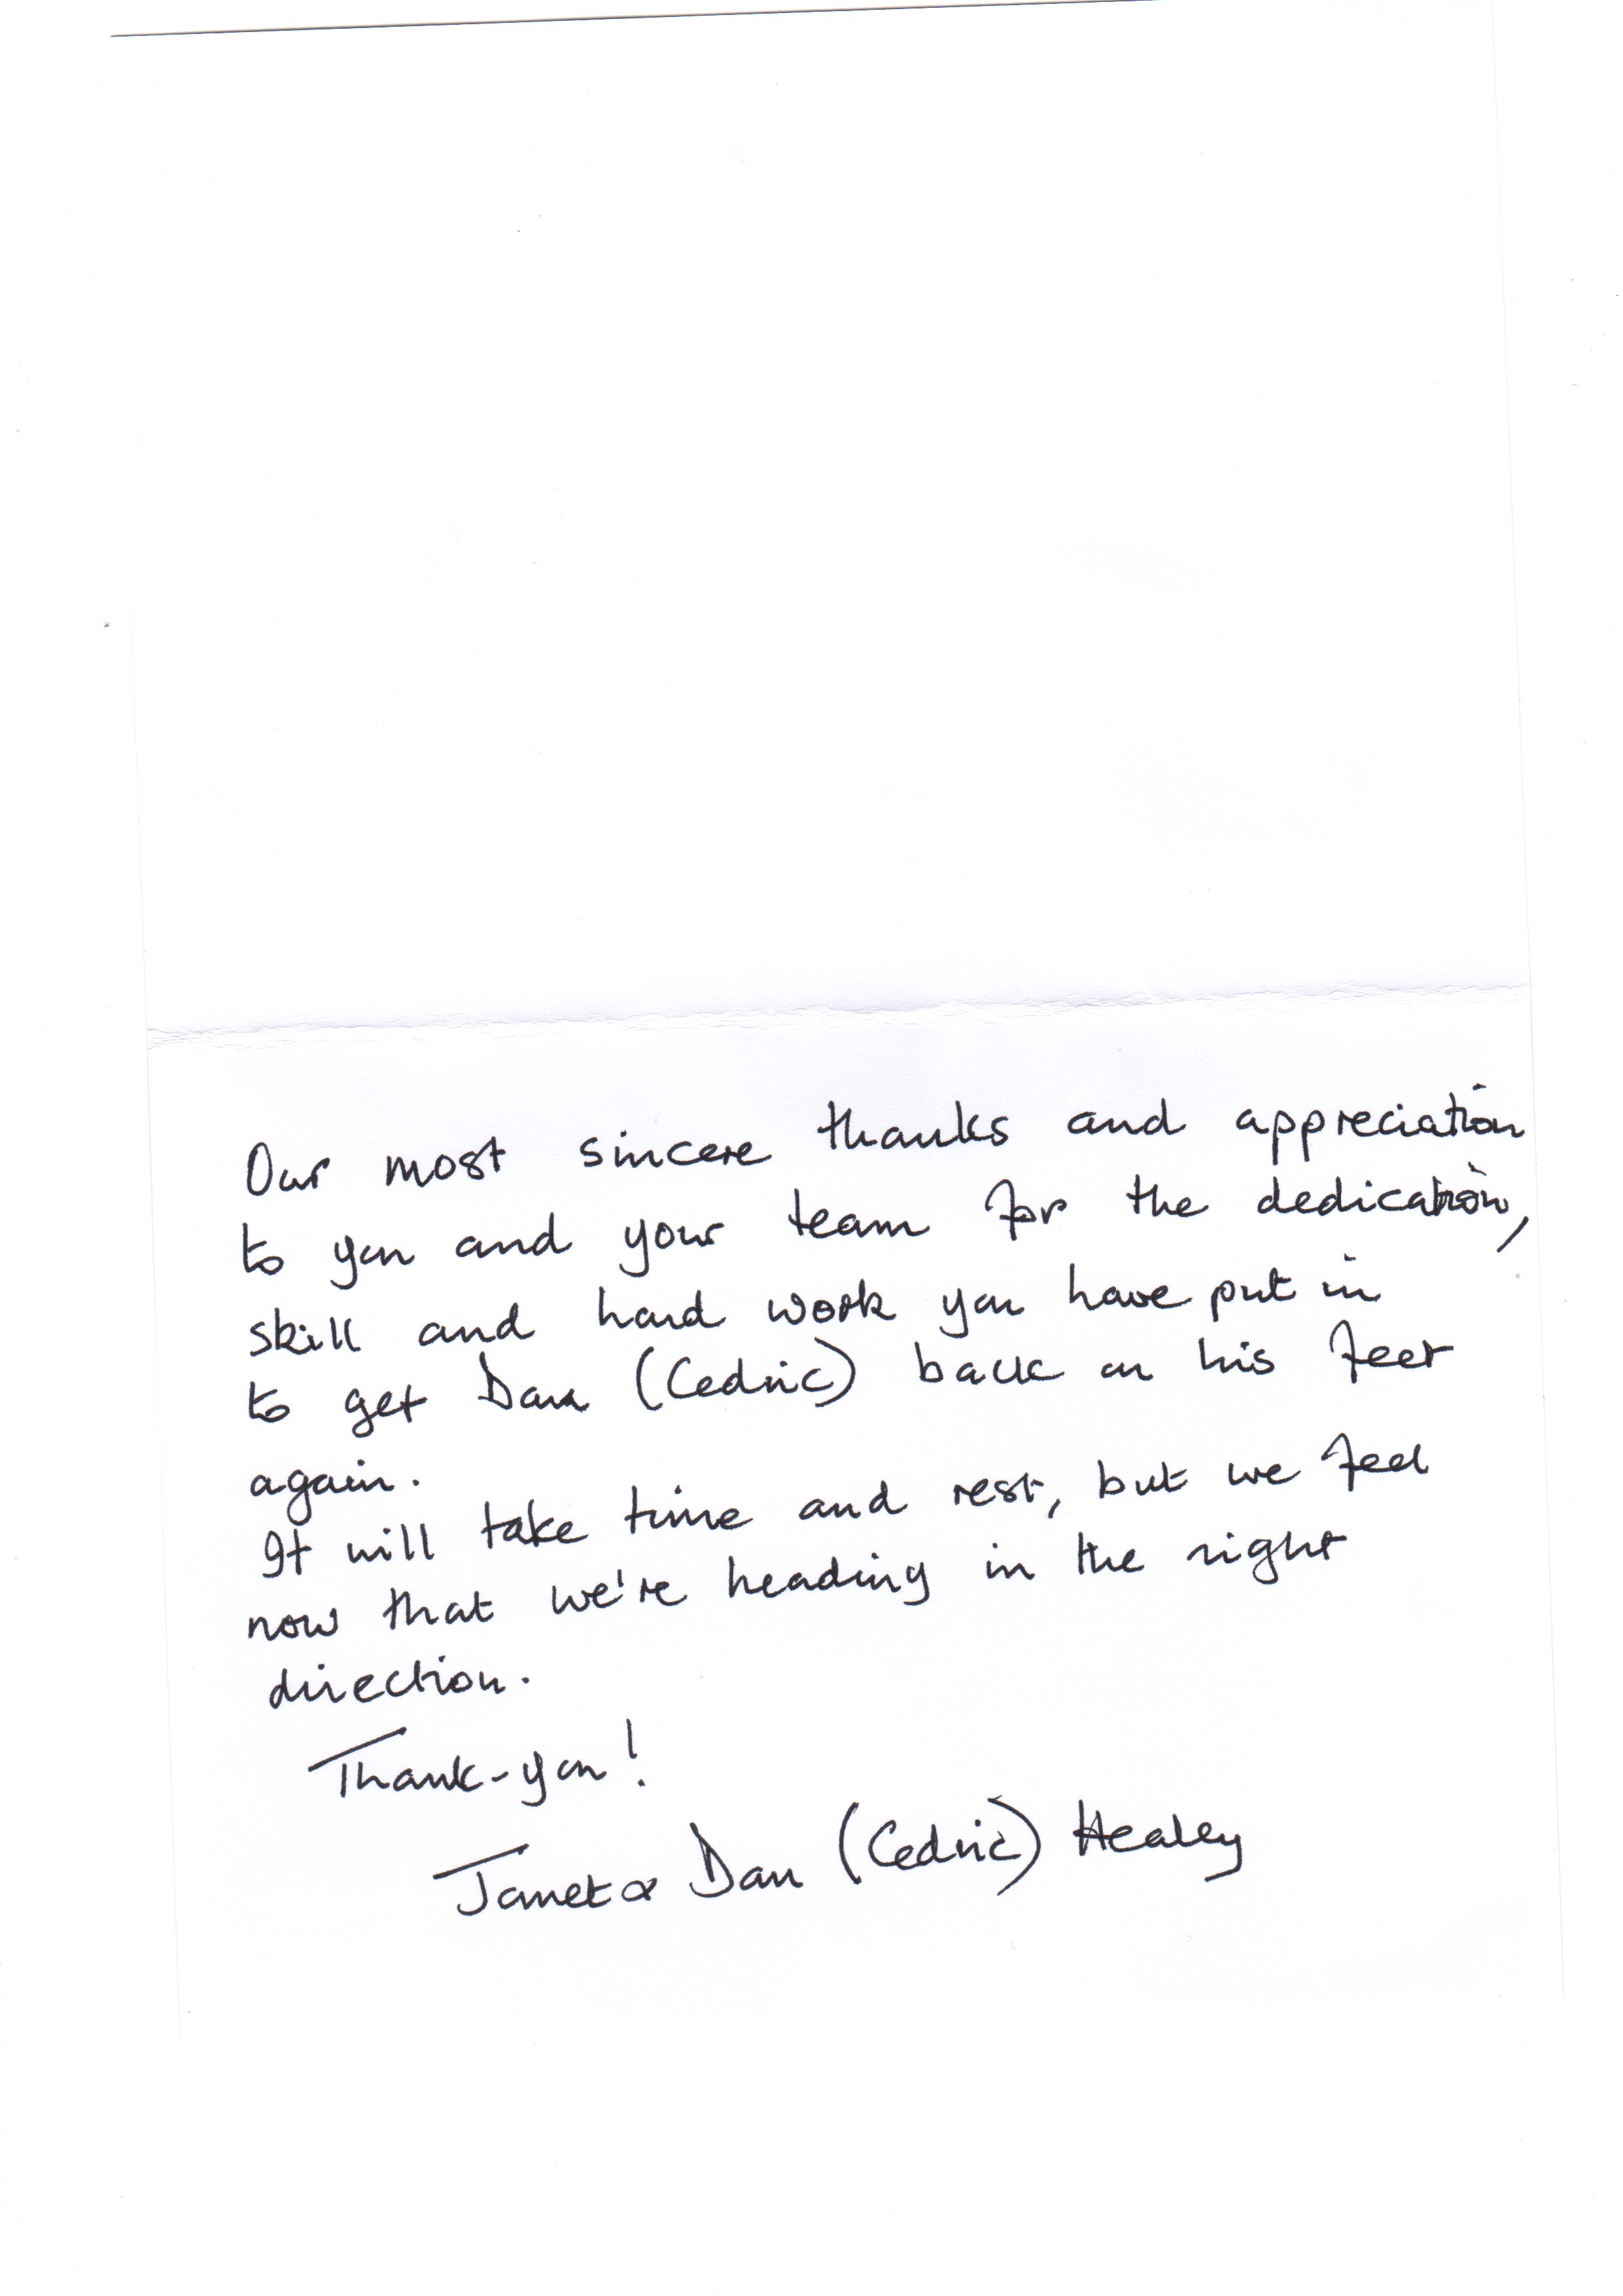 Our most sincere thanks and appreciation
to you and your team for the dedication,
skill and hard work you have put in
to get Dan (Cedric) back on his feet
again.
It will take time and rest, but we feel
now that we're heading in the right
direction.
Thank-you!
Janet & Dan (Cedric) Healey